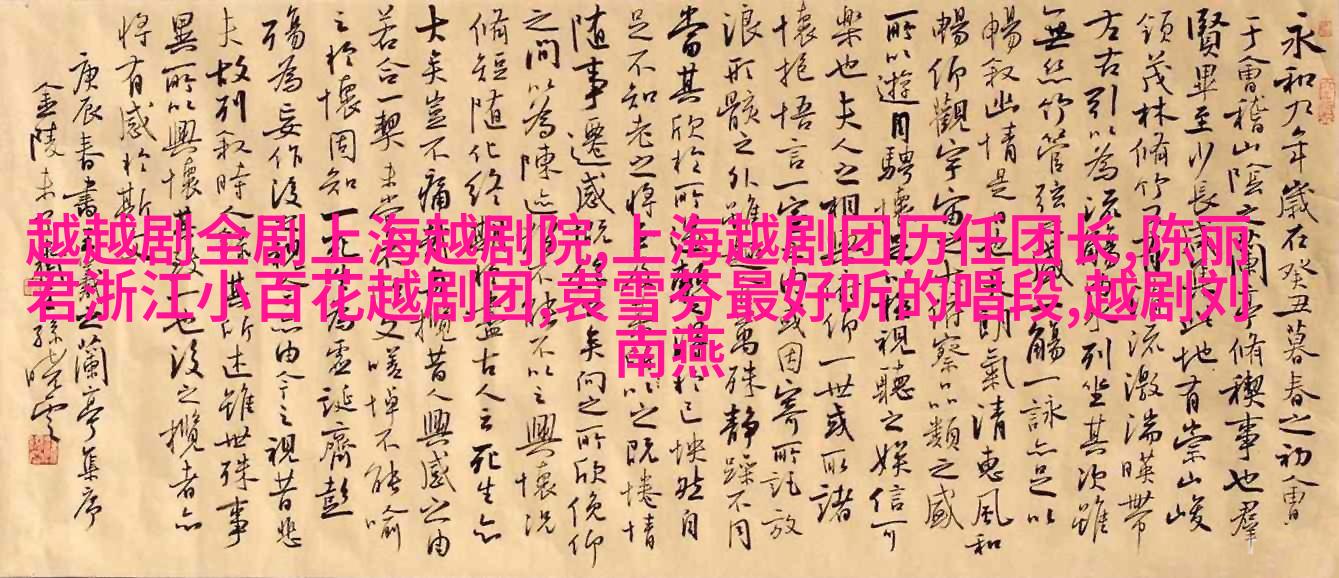 越越剧全剧上海越剧院,上海越剧团历任团长,陈丽
君浙江小百花越剧团,袁雪芬最好听的唱段,越剧刘
南燕
永和九年歲在癸丑暮春之初會
于會稽山陰之蘭亭脩禊事也羣
賢畢至少長咸集此地有崇山峻
領茂林脩竹又有清流激湍暎帶
左右引以為流觴曲水列坐其次雖
無絲竹管弦之盛一觴一詠亦足以
暢叙幽情是日也天朗氣清惠風和
暢仰觀宇宙之大俯察品類之盛
所以遊目騁懷足以極視聽之娛信可
樂也夫人之相與俯仰一世或取諸
懷抱悟言一室之內或因寄所託放
浪形骸之外雖趣舍萬殊靜躁不同
當其欣於所遇暫得於己怏然自
足不知老之將至及其所之既惓情
随事遷感慨係之矣向之所欣俛仰
之間以為陳迹猶不能不以之興懷況
脩短随化終期於盡古人云死生亦
大矣豈不痛哉每攬昔人興感之由
若合一契未嘗不臨文嗟悼不能喻
之於懷固知一死生為虛誕齊彭
殤為妄作後之視今亦由今之視昔悲
夫故列叙時人錄其所述雖世殊事
異所以興懷其致一也後之攬者亦
將有感於斯文
庚辰春書羲之蘭亭集序
金陵孫曉雲